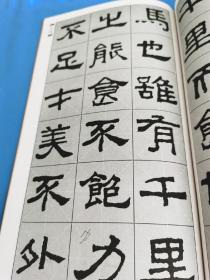 里而食
馬也雖有千里
之能食不飽力
不足才美不外